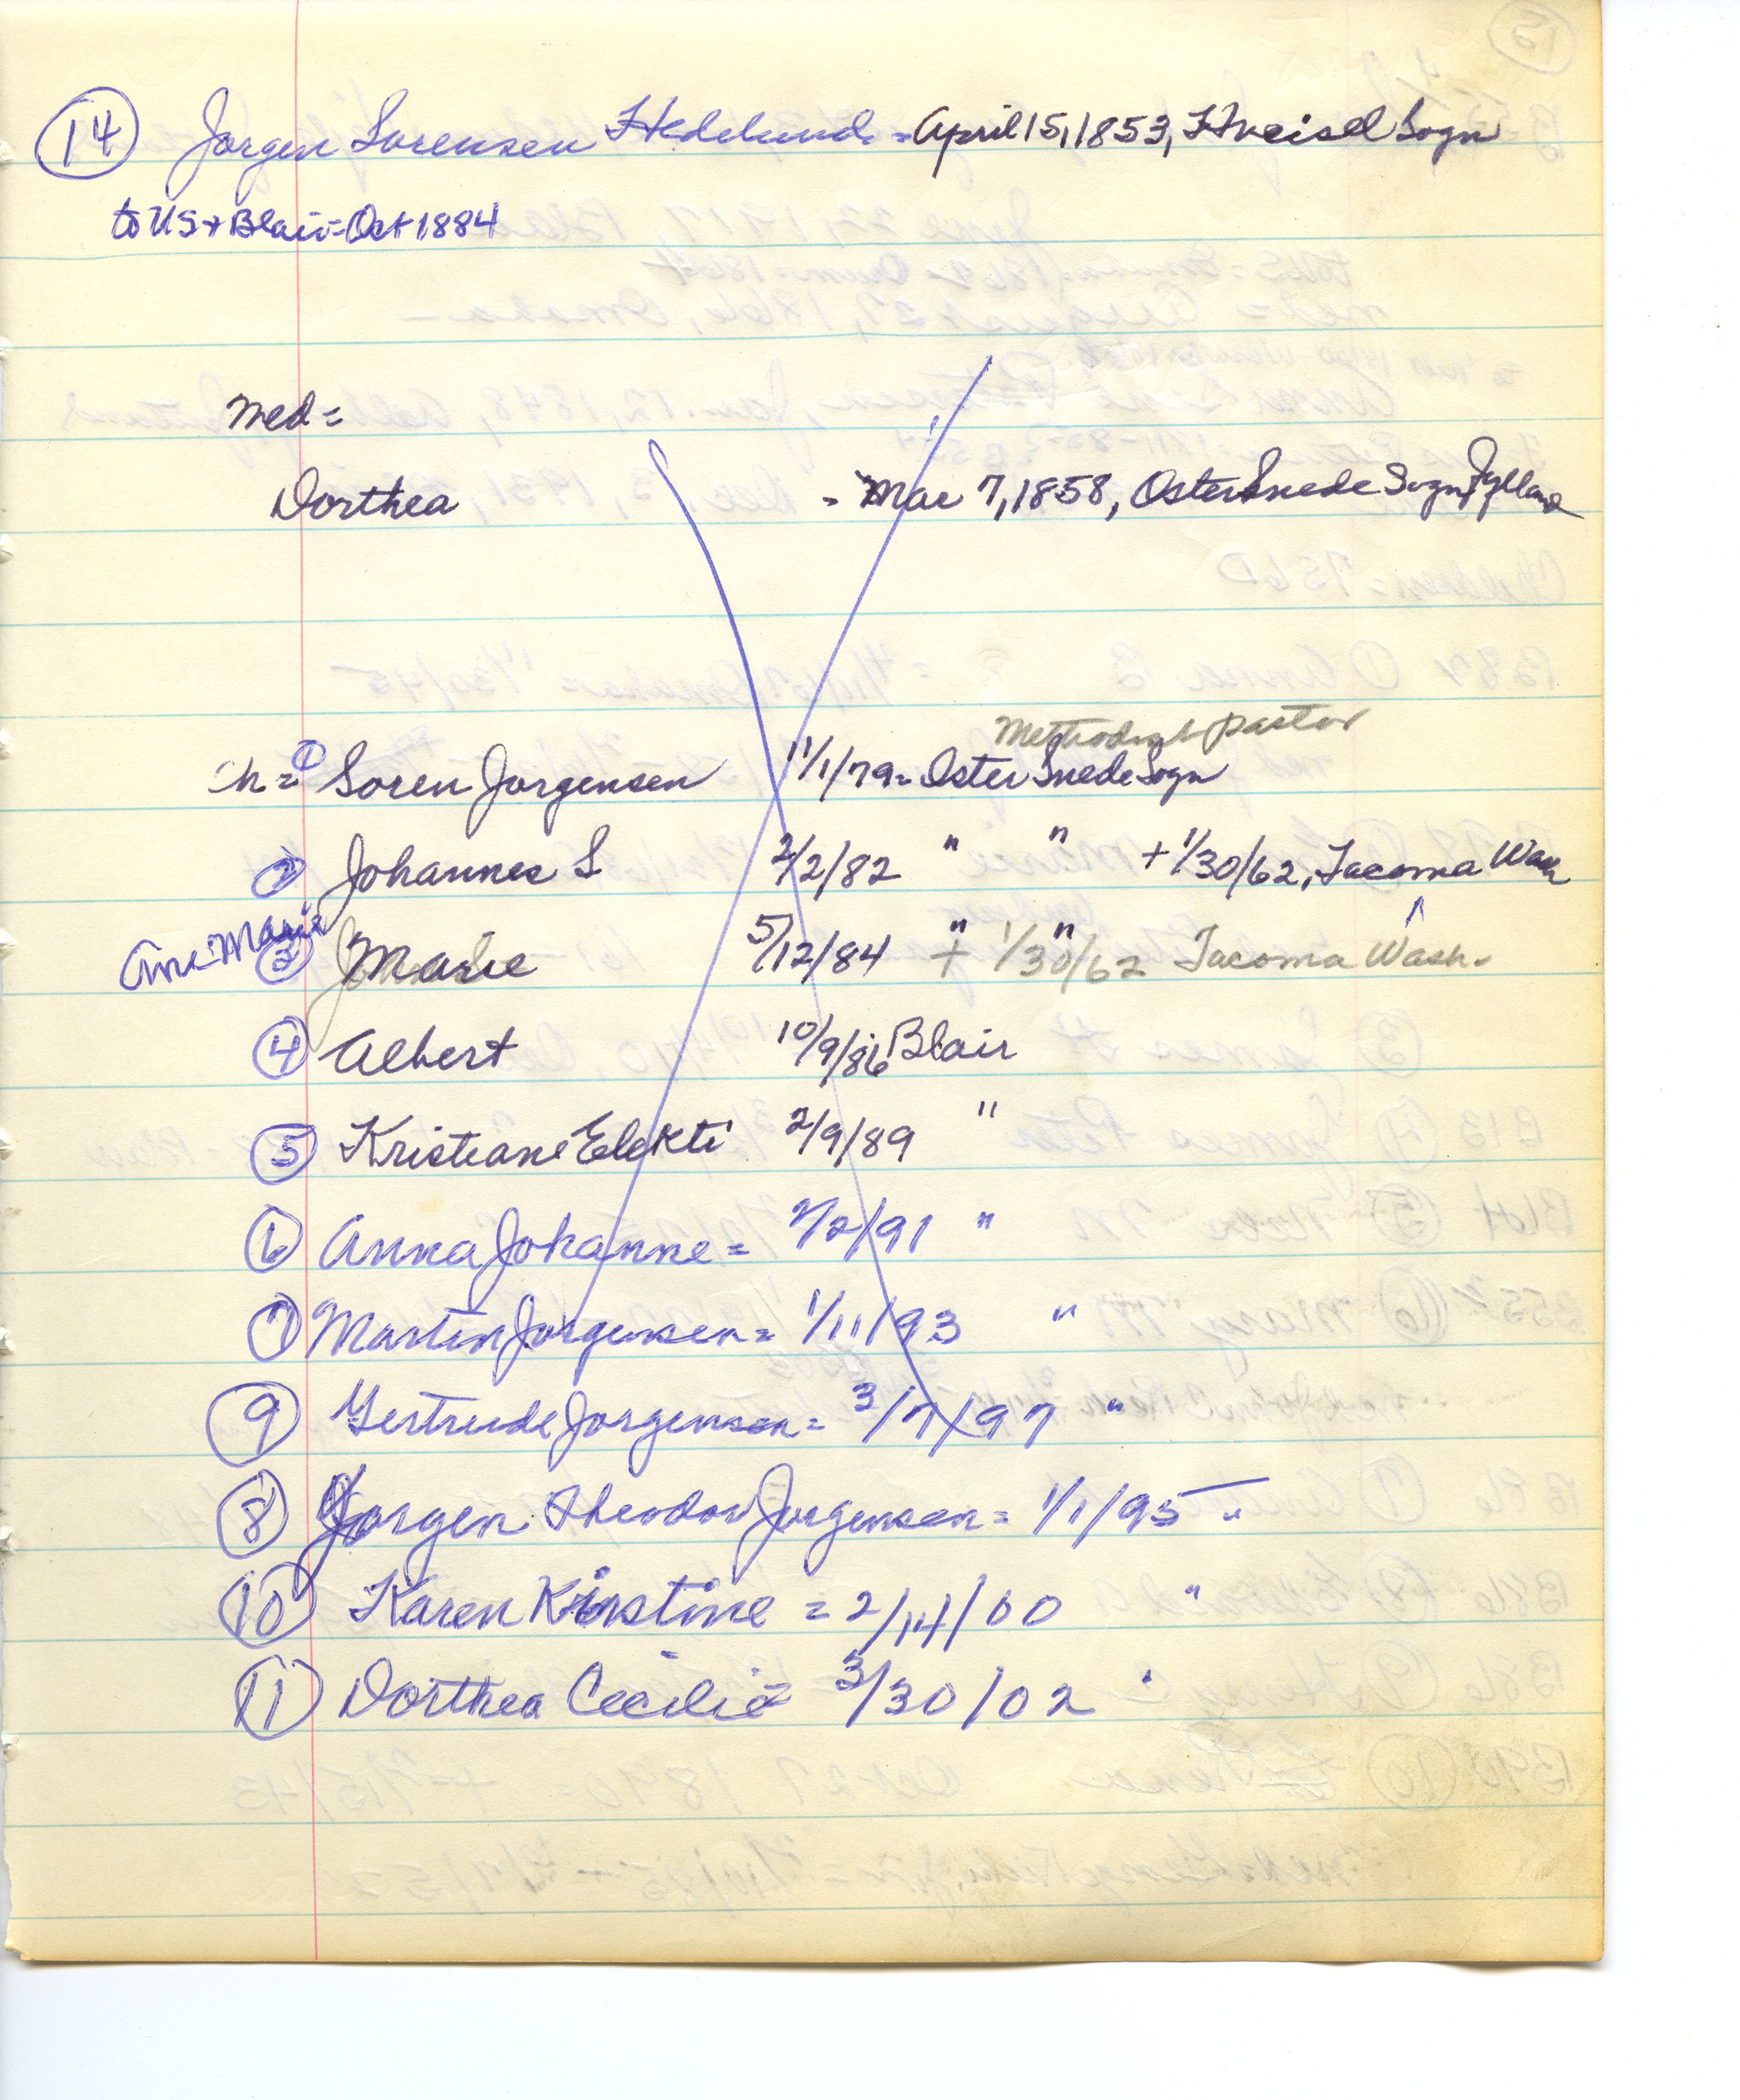 14 Jorgen Sorensen Hedelund = April 15, 1853, Hveisel Sogn
to US + Blair = Oct 1884
med =
Dorthea = Mar 7, 1858, Oster Snede Sogn, Jylland
Methodist pastor
ch = 1 Soren Jorgensen 11/1/79 = Oster Snede Sogn
2 Johannes S 2/2/82 " " + 1/30/62, Tacoma Wash
Ane Marie
3 Marie 5/12/84 " " + 1/30/62 Tacoma Wash.
4 Albert 10/9/86 Blair
5 Kristiane Elekti 2/9/89 "
6 Anna Johanne = 2/2/91 "
7 Martin Jorgensen = 1/11/93 "
9 Gertrude Jorgensen = 3/7/97 "
8 Jorgen Theodor Jorgensen = 1/1/95 "
10 Karen Kirstine = 2/14/00 "
11 Dorthea Cecilie 3/30/02 "